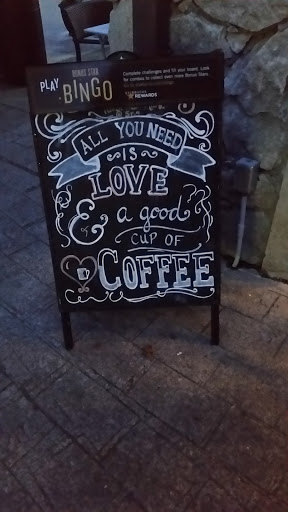 PLAY
BONUS STAR
BINGO
Complete challenges and fill your board. Look
for combos to collect even more Bonus Stars.
REWARDS
ALL YOU NEED
IS
LOVE
& a good
CUP OF
COFFEE